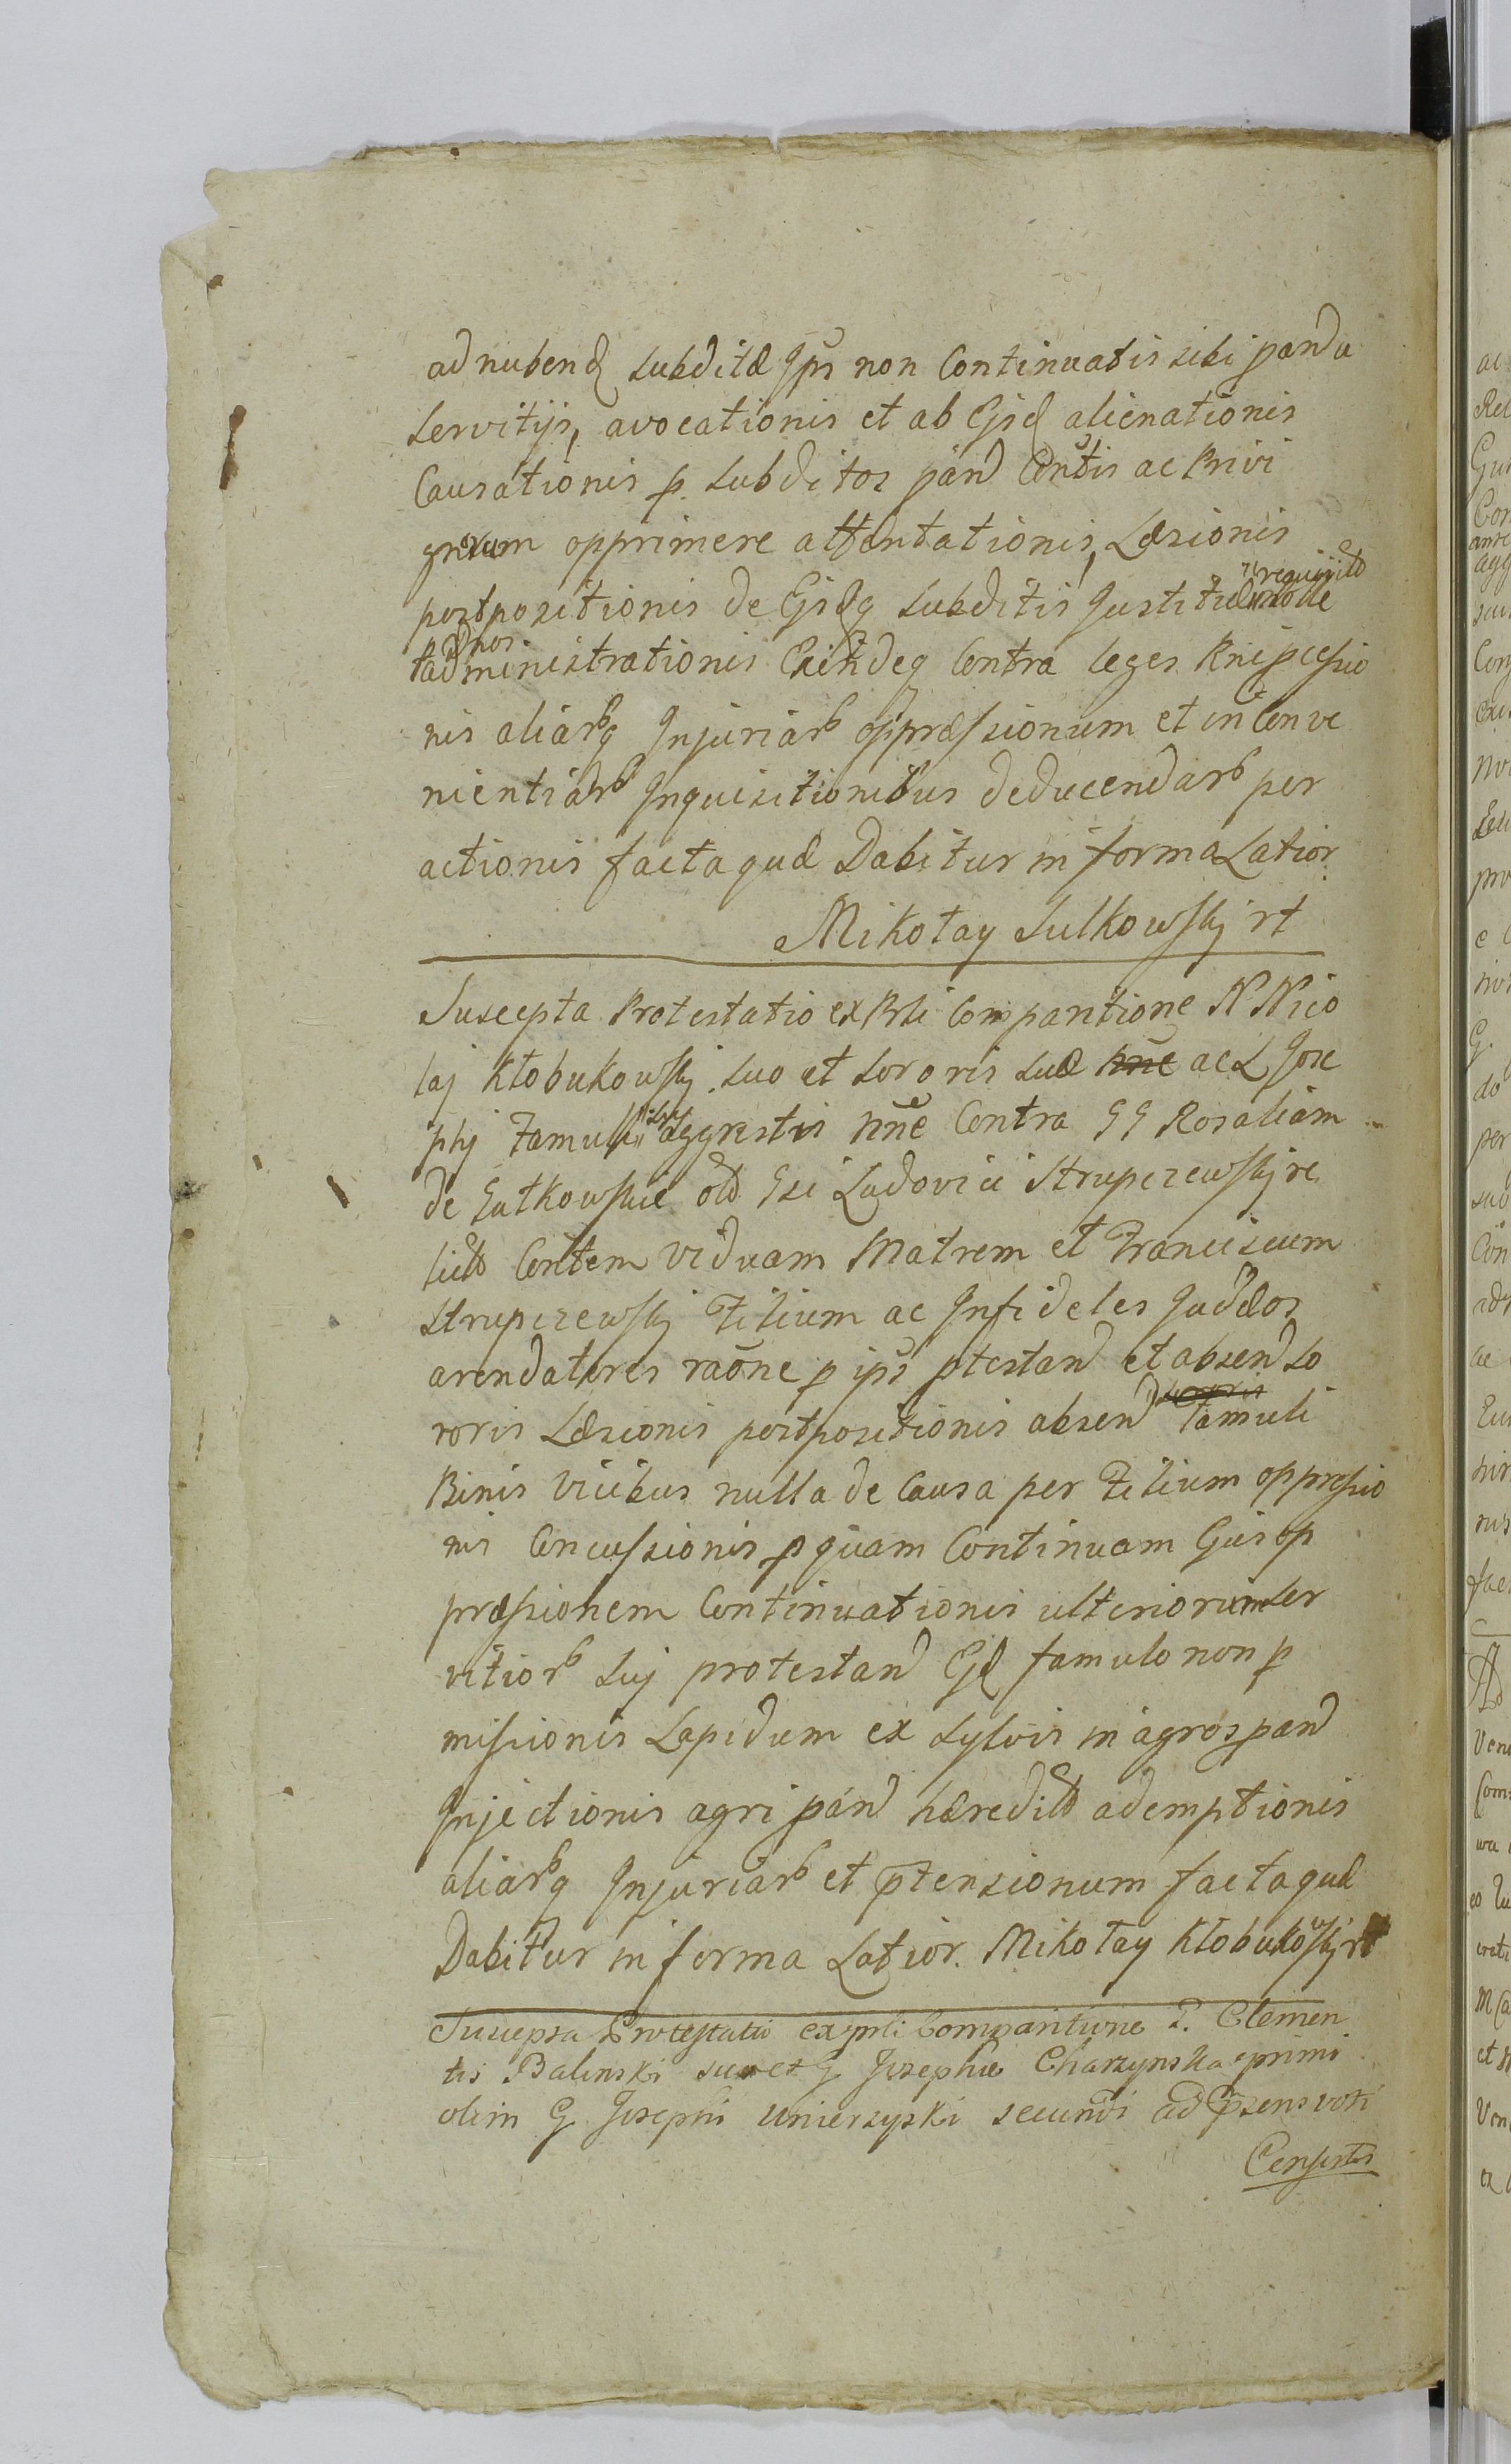 ad nubend subditæ Ips non Continuatis sibi pandu
servitijs, avocationis et ab Ejsd alienationis
Causationis p. subditos pand Contis ac Privi
gnorum opprimere attentationis, Læsionis
postpositionis de Ejsdq subditis Justitiæ requisitæ nolle
administrationis Exindeq Contra leges Principio
nis aliarq Injuriar oppræssionum et in Conve
nientiar Inquisitionibus deducendar per
actionis factaquæ Dabitur in forma Latior
Mikołay Sulkowskj rt
Suscepta Protestatio ex Psti Comparitione N Nico
laj Kłobukowskj suo et sororis suæ nne ac L Jose
phj Famuli sui aggrestis nne Contra GG Rosaliam
de Gutkowskie old Gsi Ludovici Strupczewskj re
lictæ Contem viduam Matrem et Franciscum
Strupczewskj Filium ac Infideles Judæos
arendatores raone p ips ptestand et absend so
roris Læsionis postpositionis absend Famuli
Binis vicibus nulla de Causa per Filium oppressio
nis Concussionis p quam Continuam Ejus op
præssionem Continuationis ulteriorum ser
vitior suj protestand Ejd famulo non p
missionis Lapidum ex sylvis in agros pand
Injectionis agri pand hæredit ademptionis
aliarq Injuriar et ptensionum factaquæ
Dabitur in forma Latior. Mikołay Kłobukowskj rt
Suscepta Protestatio ex psti Comparitione P. Clemen
tis Balinski suo et G Josephæ Charzynska primi
olim G Josephi Unierzyski secundi ad psens voti
Consortis